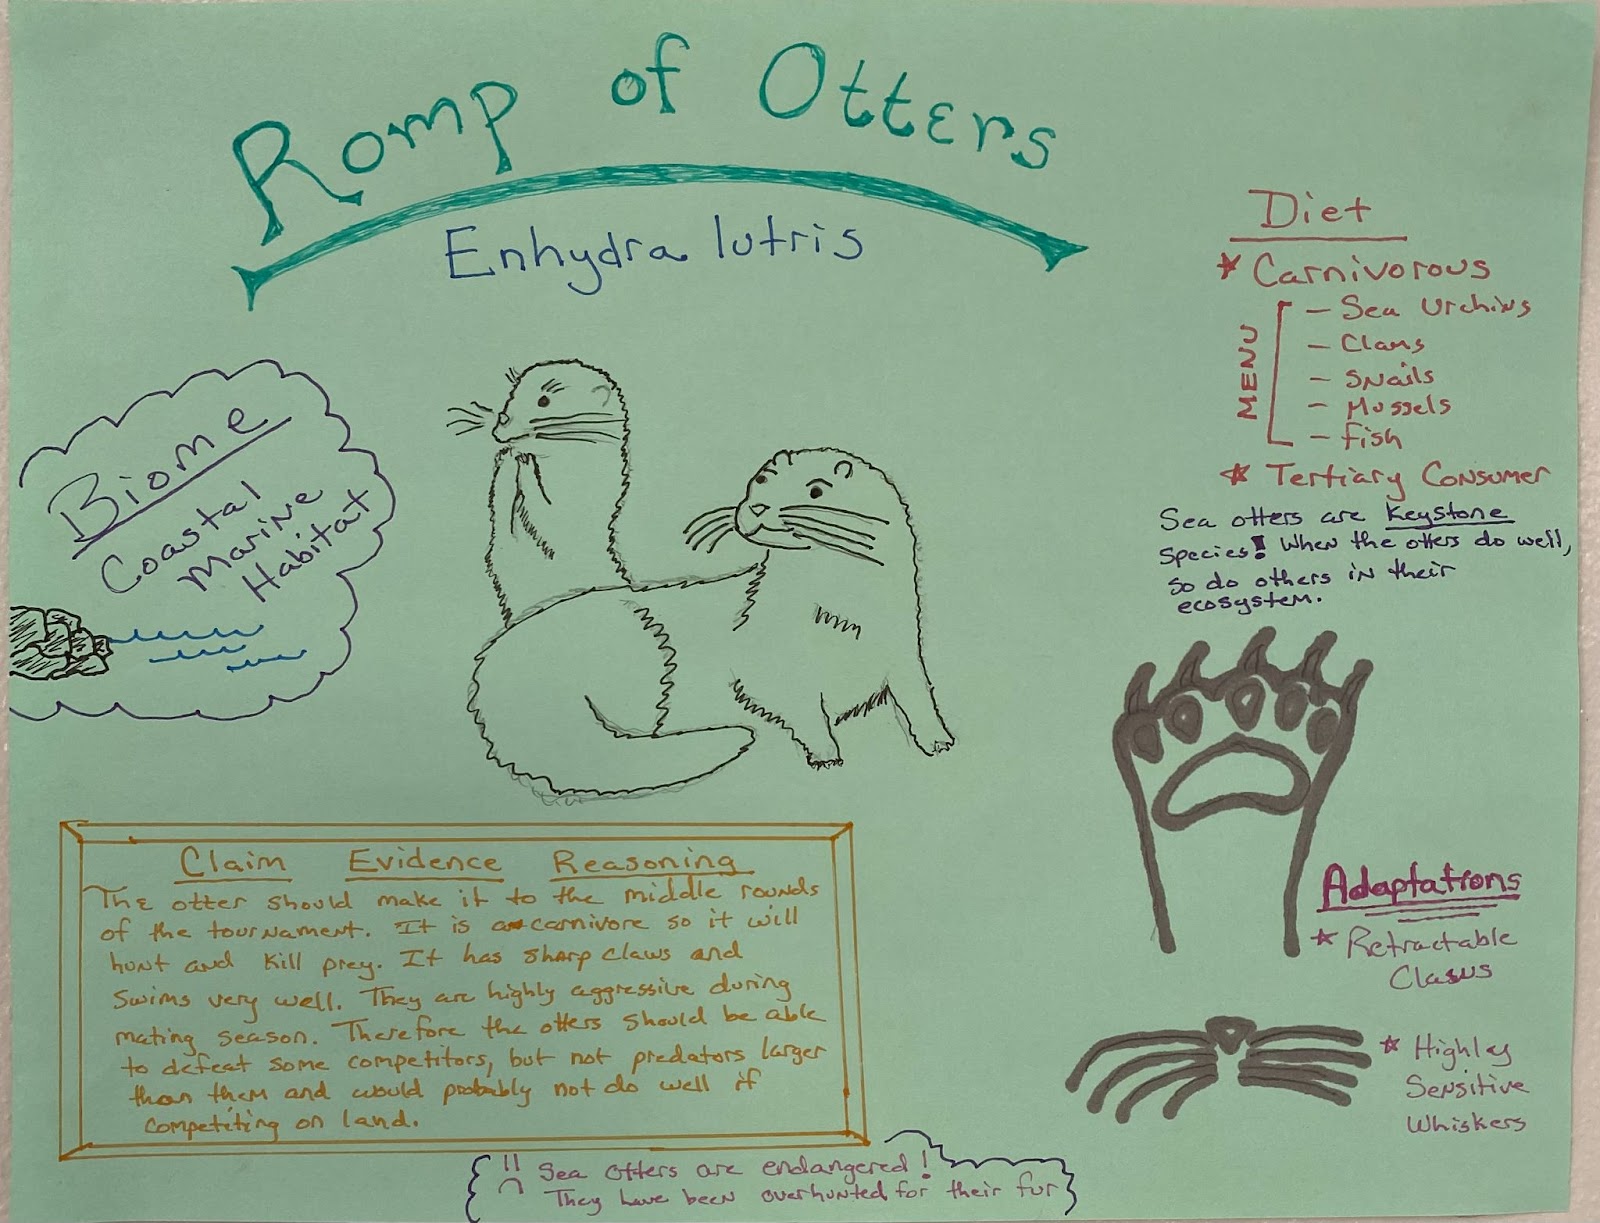 Romp of Otters
Enhydra lutris
Biome
Coastal
Marine
Habitat
Diet
* Carnivorous
MENU
- Sea Urchins
- Clams
- Snails
- Mussels
- Fish
* Tertiary Consumer
Sea otters are Keystone
species! When the otters do well,
so do others in their
ecosystem.
Adaptations
* Retractable
Claws
* Highley
Sensitive
Whiskers
Claim Evidence Reasoning
The otter should make it to the middle rounds
of the tournament. It is a carnivore so it will
hunt and kill prey. It has sharp claws and
swims very well. They are highly aggressive during
mating season. Therefore the otters should be able
to defeat some competitors, but not predators larger
than them and would probably not do well if
competiting on land.
Sea otters are endangered!
They have been overhunted for their fur